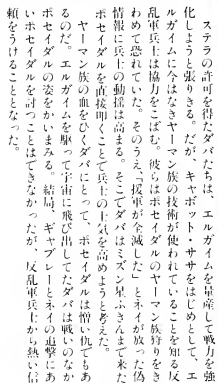 ステラの許可を得たダバたちは、エルガイムを量産して戦力を強
化しようと張りきる。だが、キャボット・ササをはじめとして、エ
ルガイムに今はなきヤーマン族の技術が使われていることを知る反
乱軍兵士は協力をこばむ。彼らはポセイダルのヤーマン族狩りをき
わめて恐れていた。そのうえ、「援軍が全滅した」とネイが放った偽
情報に兵士の動揺は高まる。そこでダバはミズン星ふきんまで来た
ポセイダルを直接叩くことで兵士の士気を高めようと考えた。
ヤーマン族の血をひくダバにとって、ポセイダルは憎い仇でもあ
るのだ。エルガイムを駆って宇宙に飛び出してたダバは戦いのなか
ポセイダルの姿をかいまみる。結局、ギャブレーとネイの追撃にあ
いポセイダルを討つことはできなかったが、反乱軍兵士から熱い信
頼をうけることとなった。